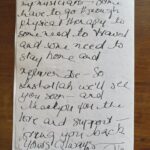 my musicians — some
have to go through
physical therapy to
some need to travel
and some need to
stay home and
So
we'll see
you soon and
thank you for the
love and support —
bring you back